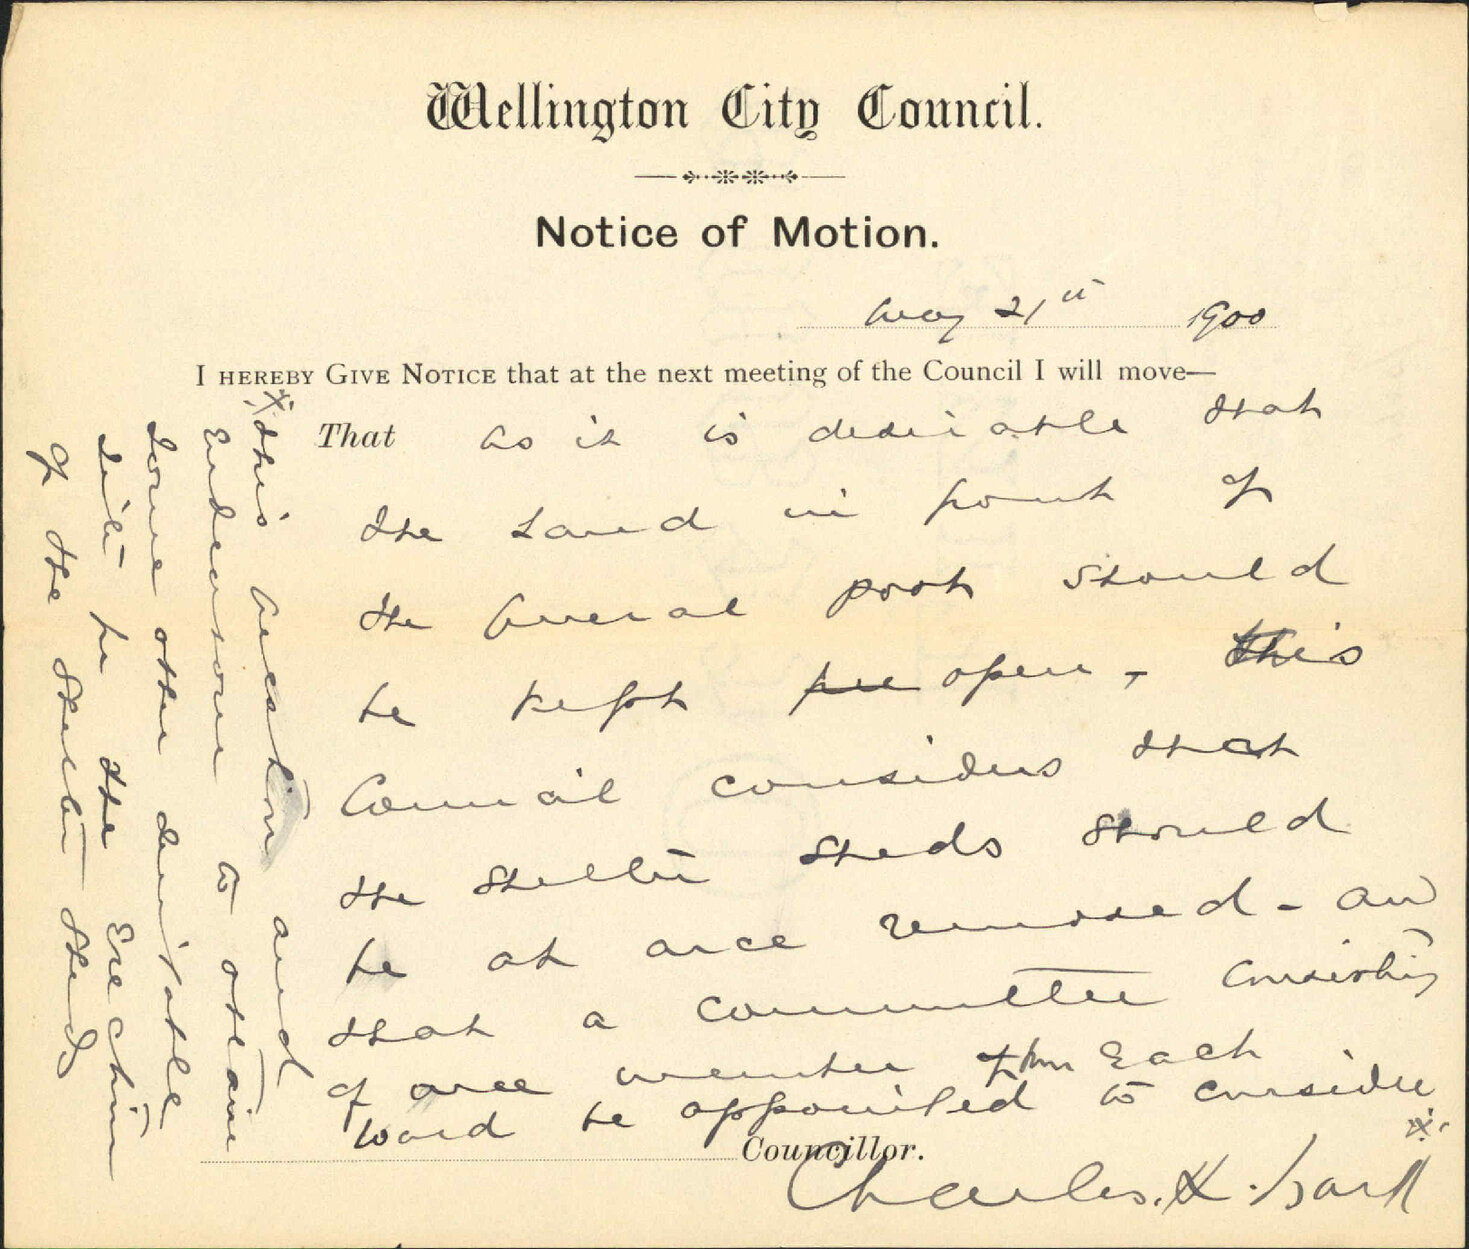 Wellington City Council.
Notice of Motion.
May 21st 1900
I HEREBY GIVE NOTICE that at the next meeting of the Council I will move—
That as it is desirable that
the land in front of
the General post should
be kept open, this
Council considers that
the shelter sheds should
be at once removed - and
that a committee consisting
of one member from each
ward be appointed to consider
Councillor.
Charles. H.
this question and
Endeavour to obtain
some other suitable
site for the Erection
of the shelter sheds